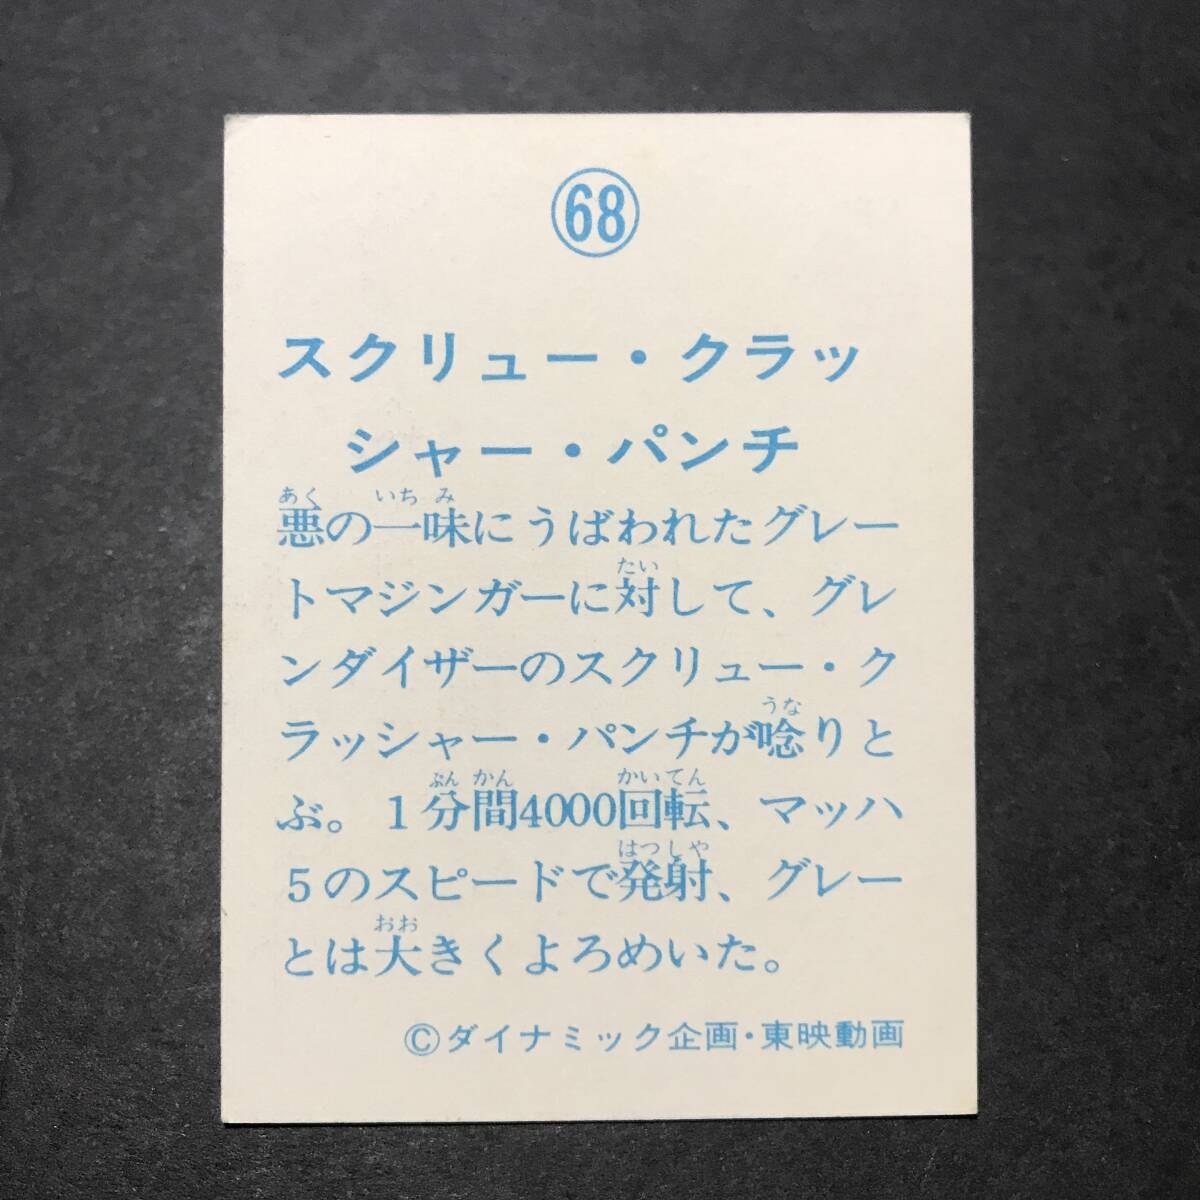 68
スクリュー・クラッ
シャー・パンチ
あく いち み
悪の一味にうばわれたグレー
たい
トマジンガーに対して、グレ
ンダイザーのスクリュー・ク
うな
ラッシャー・パンチが唸りと
ぷん かん かいてん
ぶ。1分間4000回転、マッハ
はつしや
5のスピードで発射、グレー
おお
とは大きくよろめいた。
©ダイナミック企画・東映動画